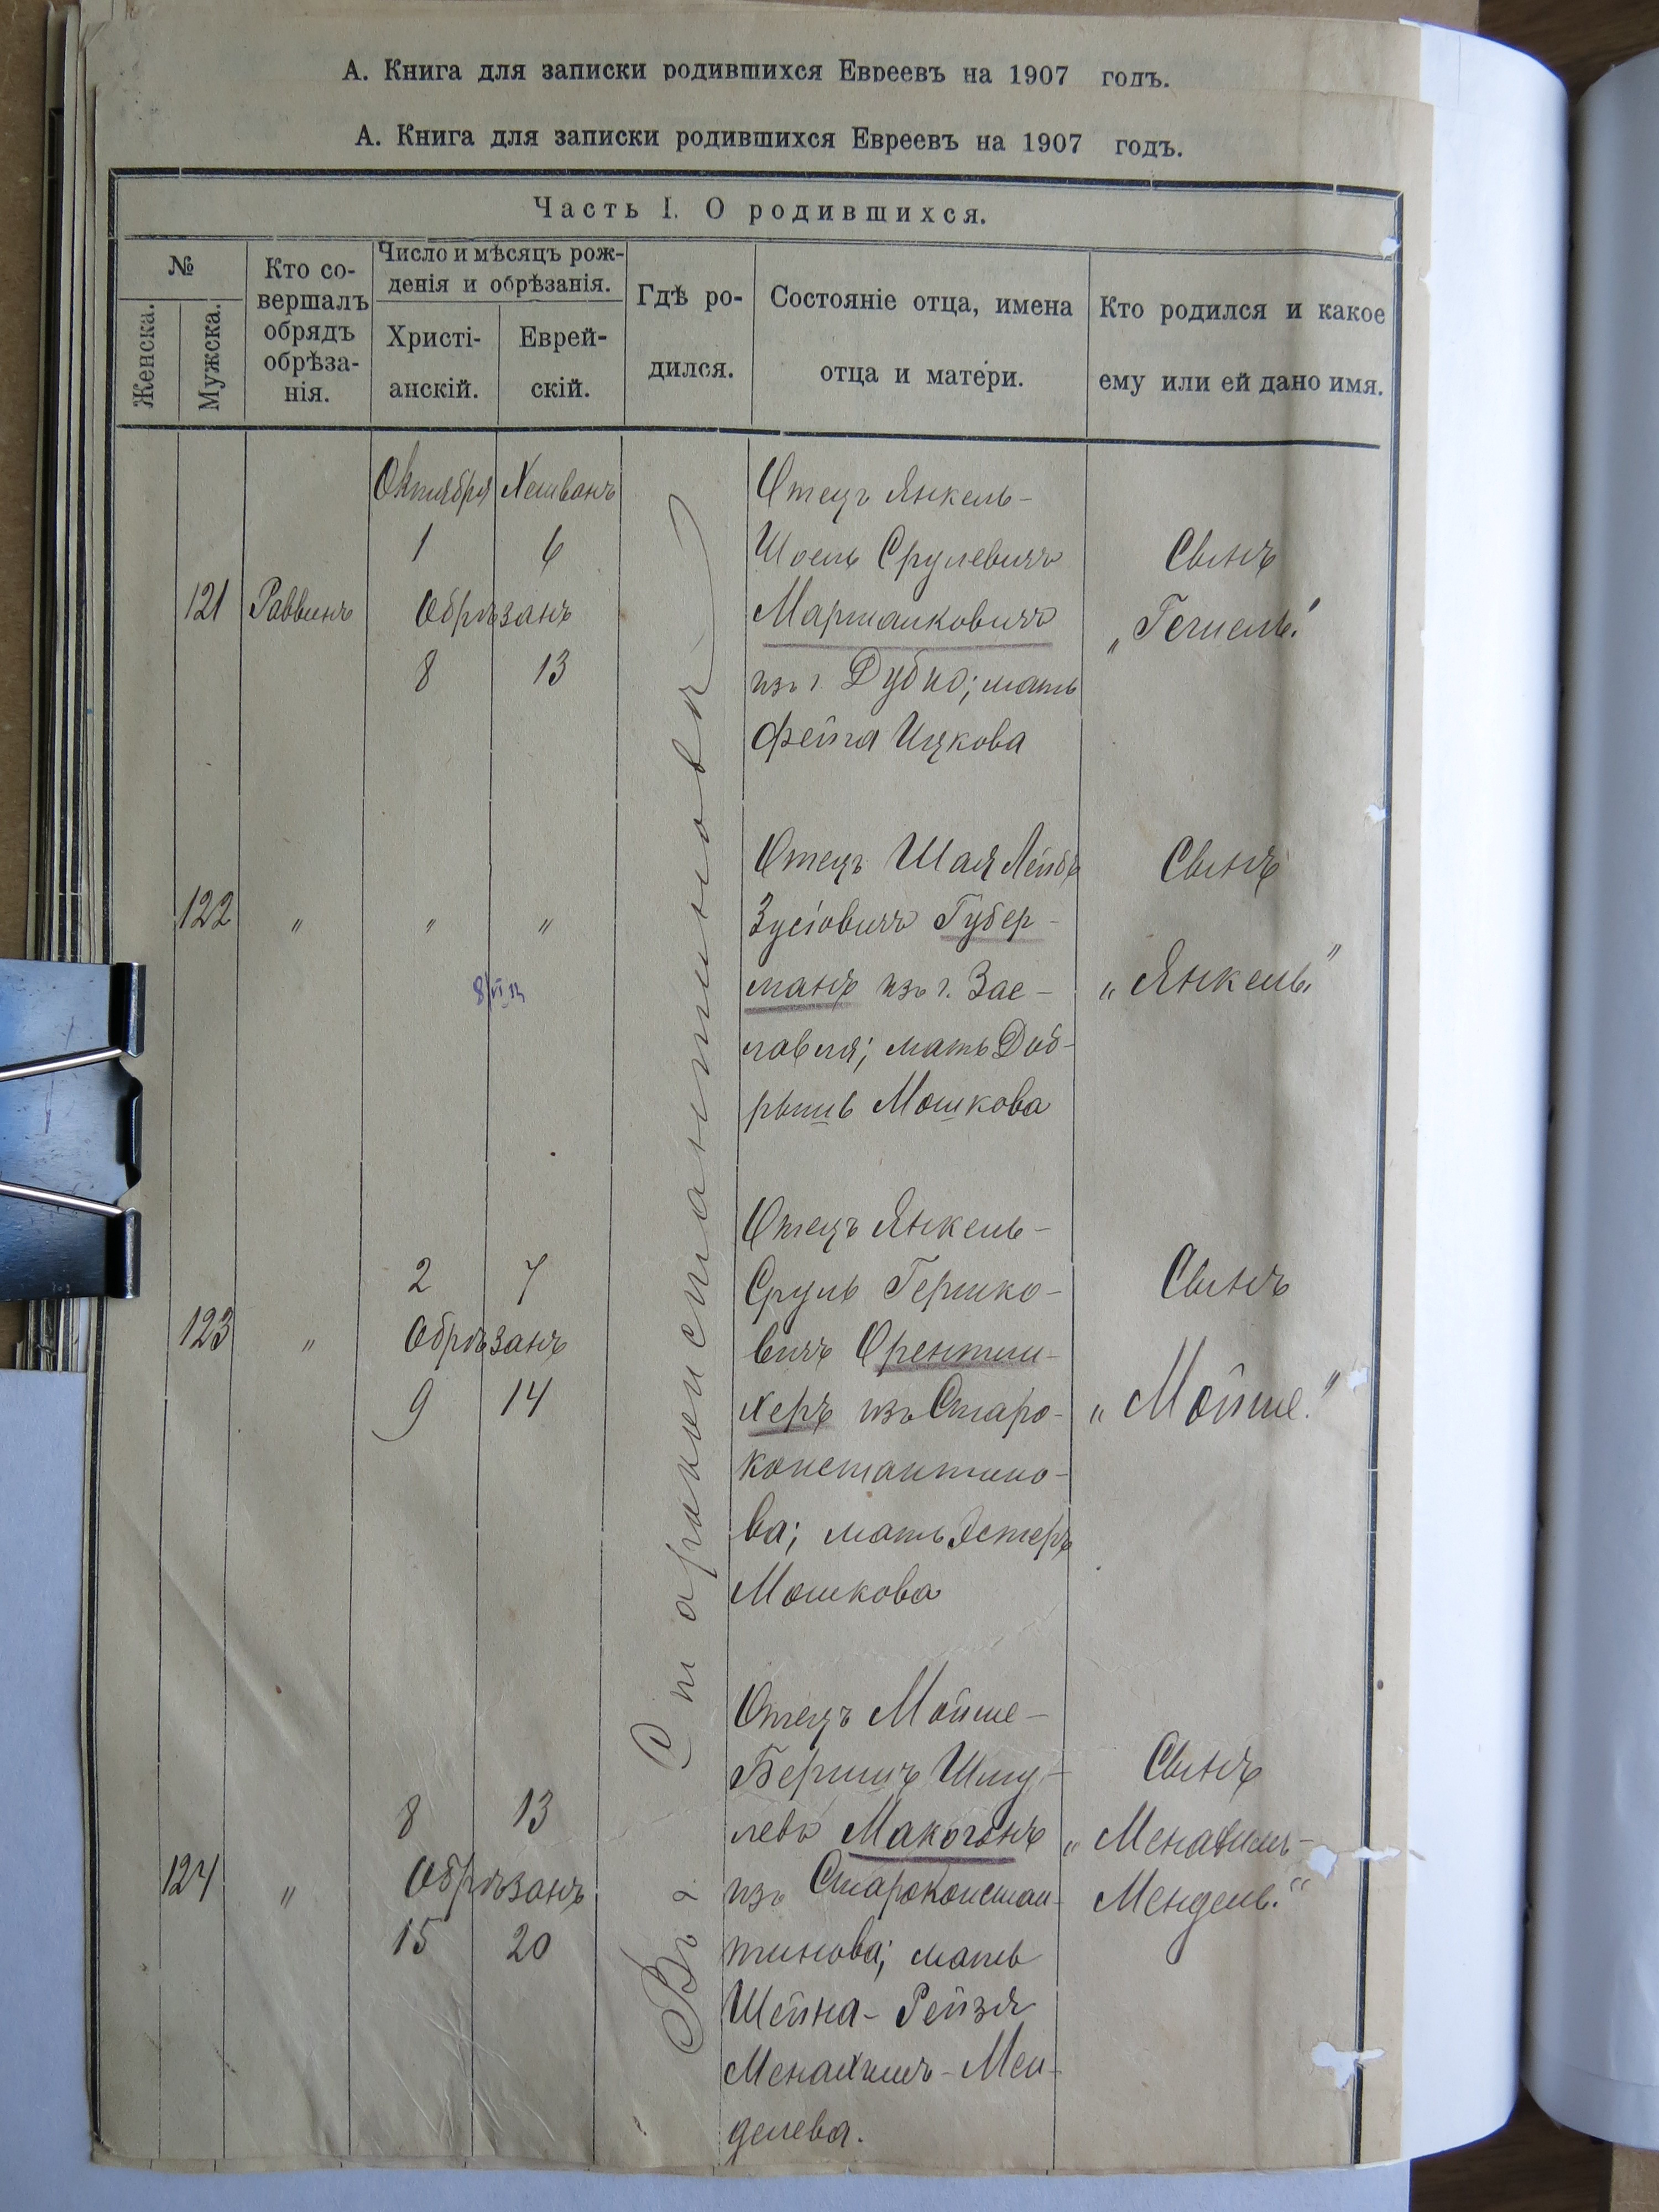 А. Книга для записки родившихся Евреевъ на 1907 годъ.
А. Книга для записки родившихся Евреевъ на 1907 годъ.
Часть I. О родившихся.
№
Женска.
Мужска.
Кто со-
вершалъ
обрядъ
обрѣза-
нія.
Число и мѣсяцъ рож-
денія и обрѣзанія.
Христі-
анскій.
Еврей-
скій.
Гдѣ ро-
дился.
Состояніе отца, имена
отца и матери.
Кто родился и какое
ему или ей дано имя.
Въ г. Староконстантиновѣ
121
Раввинъ
Октября Хешванъ
1 6
Обрѣзанъ
8 13
Отецъ Янкель-
Шоель Срулевичъ
Маршалковичъ
изъ г. Дубно; мать
Фейга Ицкова
Сынъ
„Гешель"
122
"
" "
Отецъ Шая Лейбъ
Зусіовичъ Губер-
манъ изъ г. Зас-
лавля; мать Доб-
рышъ Мошкова
Сынъ
„Янкель"
123
"
2 7
Обрѣзанъ
9 14
Отецъ Янкель-
Сруль Гершко-
вичъ Орентли-
херъ изъ Старо-
константино-
ва; мать Эстеръ
Мошкова
Сынъ
„Мойше."
124
"
8 13
Обрѣзанъ
15 20
Отецъ Мойше-
Беришъ Шму-
левъ Макогонъ
изъ Староконстан-
тинова; мать
Шейна-Рейзя
Менахимъ-Мен-
делева.
Сынъ
„Менахимъ-
Мендель."